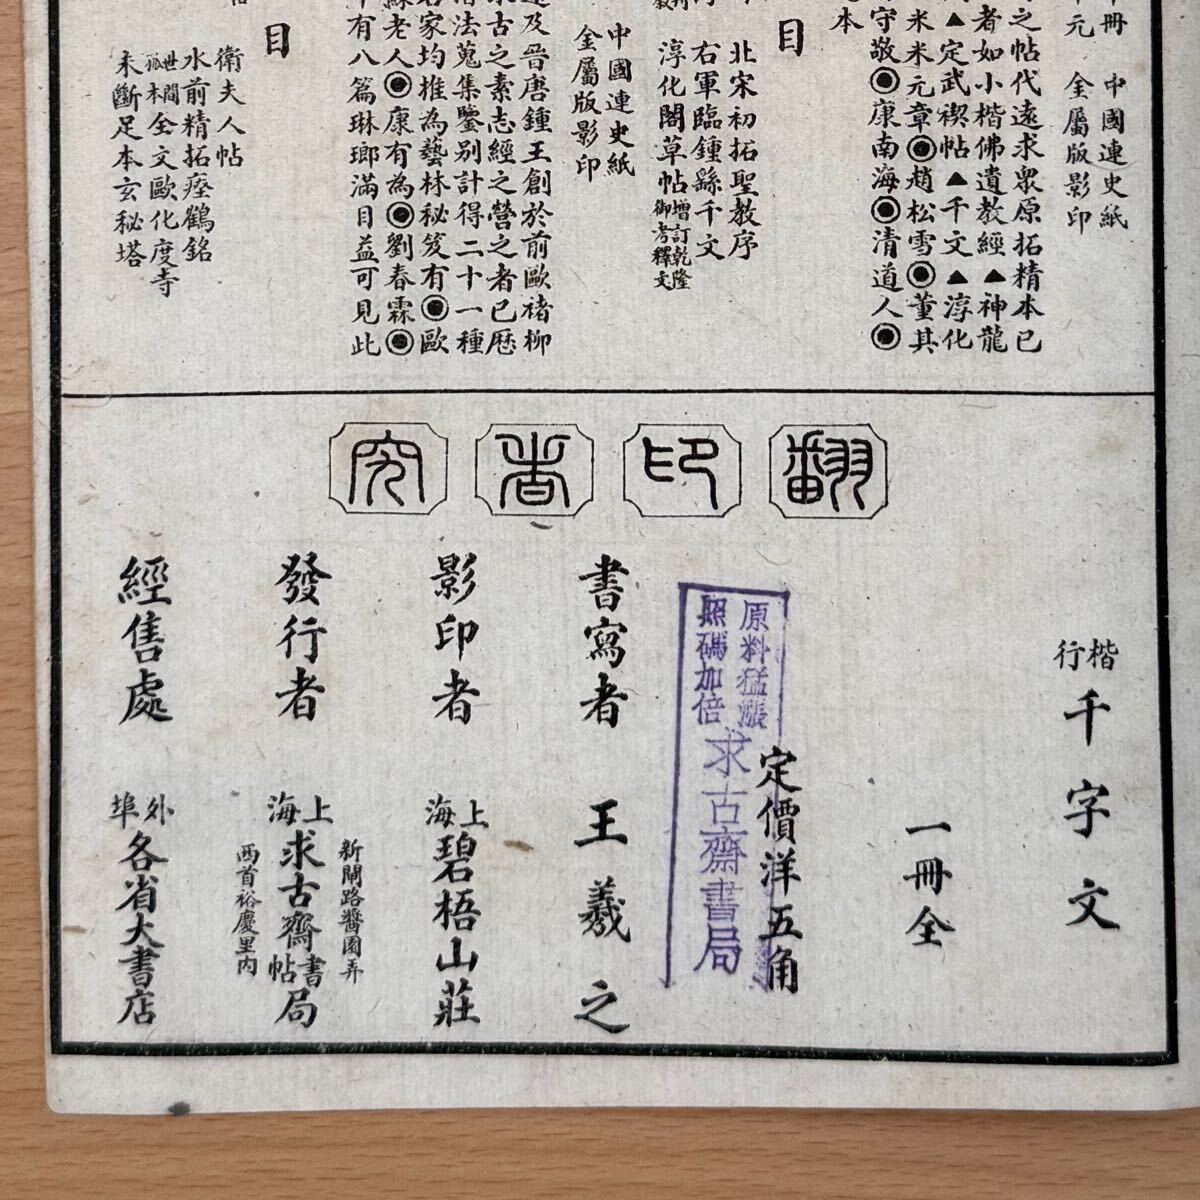 冊 中國連史紙
元 金屬版影印
之帖代遠求眾原拓精本已
者如小楷佛遺教經▲神龍
▲定武禊帖▲千文▲淳化
米米元章◉趙松雪◉董其
守敬◉康南海◉清道人◉
本
目
北宋初拓聖教序
右軍臨鍾繇千文
淳化閣草帖增訂乾隆御考釋文
中國連史紙
金屬版影印
及晉唐鍾王創於前歐褚柳
古之素志經之營之者已歷
法蒐集鑒别計得二十一種
名家均推為藝林秘笈有◉歐
蘇老人◉康有為◉劉春霖◉
有八篇琳瑯滿目益可見此
目
衛夫人帖
水前精拓瘞鶴銘
世間孤本全文歐化度寺
未斷足本玄秘塔
翻印者究
楷行千字文
一冊全
定價洋五角
原料猛漲
照碼加倍
求古齋書局
書寫者 王羲之
影印者 上海碧梧山莊
發行者 上海求古齋書帖局
新閘路醬園弄
西首裕慶里內
經售處 外埠各省大書店